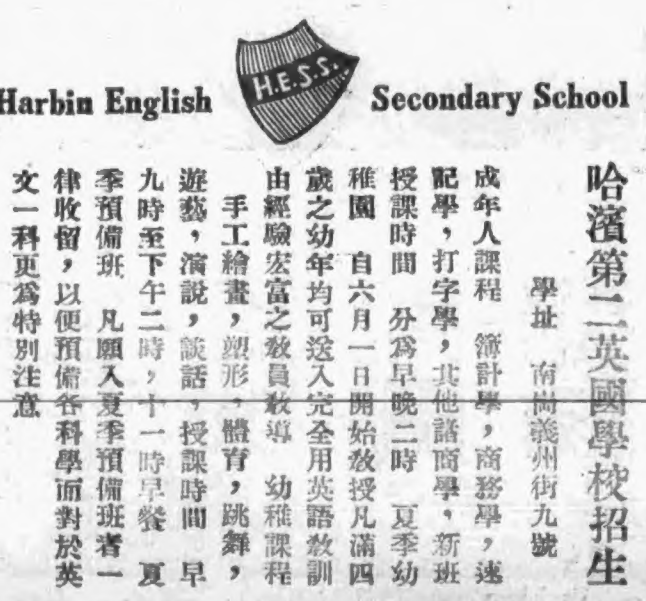 Harbin English Secondary School
H.E.S.S.
哈濱第二英國學校招生
學址 南崗義州街九號
成年人課程 簿計學，商務學，速
記學，打字學，其他諸商學，新班
授課時間 分爲早晚二時 夏季幼
稚園 自六月一日開始敎授凡滿四
歲之幼年均可送入完全用英語敎訓
由經驗宏富之敎員敎導 幼稚課程
手工繪畫，塑形，體育，跳舞，
遊藝，演說，談話，授課時間 早
九時至下午二時，十一時早餐 夏
季預備班 凡願入夏季預備班者一
律收留，以便預備各科學而對於英
文一科更爲特別注意